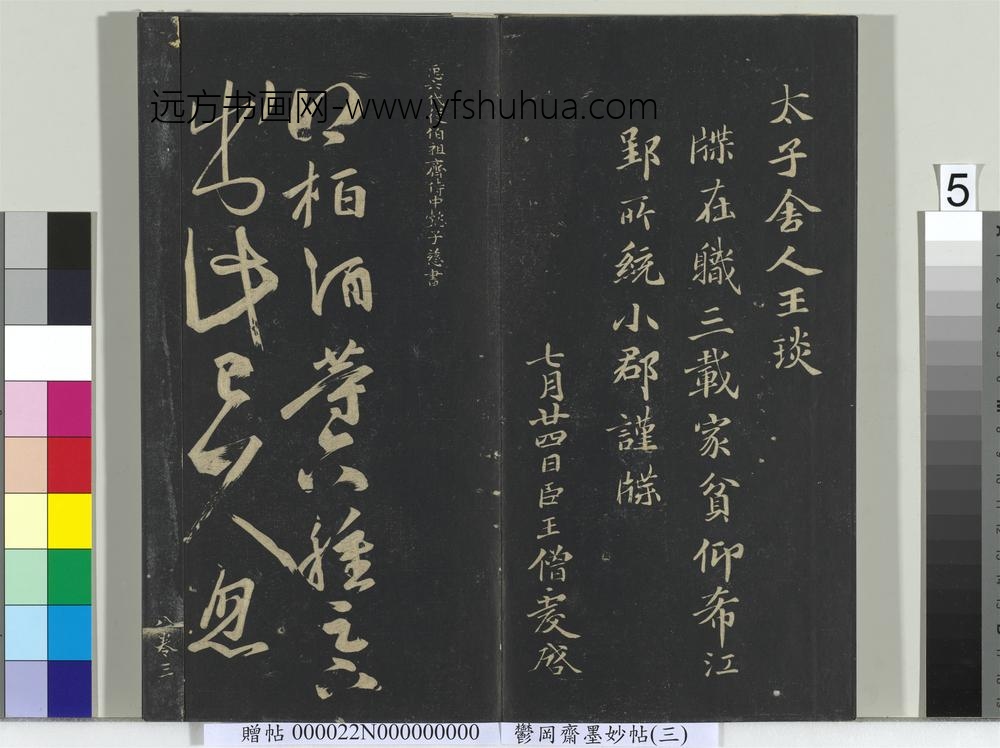 太子舍人王琰
牒在職三載家貧仰希江
郢所統小郡謹牒
七月廿四日臣王僧虔啓
六代從伯祖齊侍中子慈書
得柏酒等六種足下
出此已久忽
八卷三
远方书画网-www.yfshuhua.com
5
贈帖 000022N000000000 鬱岡齋墨妙帖(三)